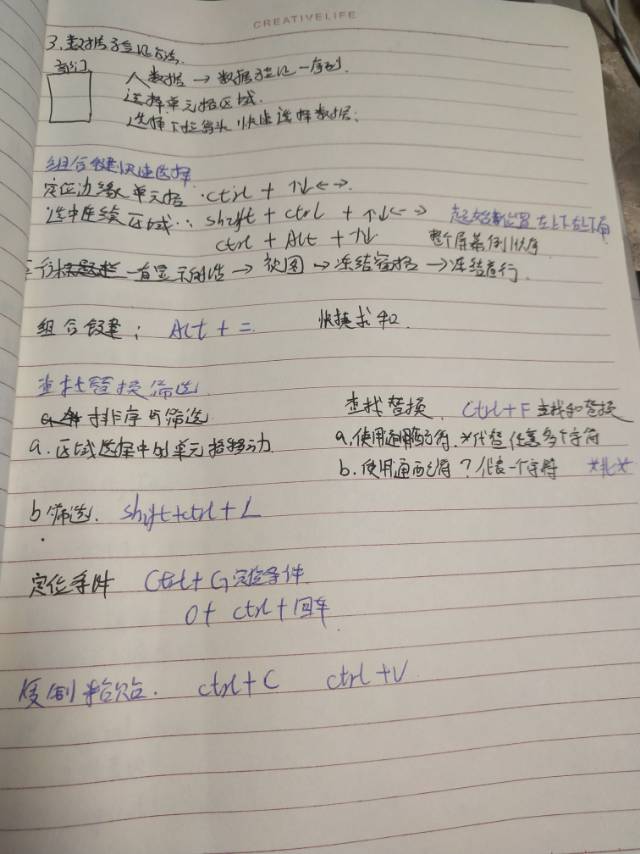 CREATIVELIFE
3.数据验证方法.
部门
数据 → 数据验证 — 序列.
选择单元格区域.
选择下拉箭头 快速选择数据.
组合键快速选择
定位边缘单元格 ctrl + ↑↓←→.
选中连续区域: shift + ctrl + ↑↓←→ 起始位置 左上下右上下角
ctrl + Alt + ↑↓ 整个屏幕倒状序
一直显示 → 视图 → 冻结窗格 → 冻结首行.
组合键: Alt + = 快捷求和
查找替换筛选
排序与筛选 查找替换. Ctrl+F 查找和替换
a.区域选择中的单元格移动 a.使用通配符.*代替任意多个字符
b.使用通配符 ? 代表一个字符 *北*
b筛选. shift+ctrl+L
定位条件 Ctrl+G定位条件
0+ ctrl+回车
复制粘贴. ctrl+C ctrl+V